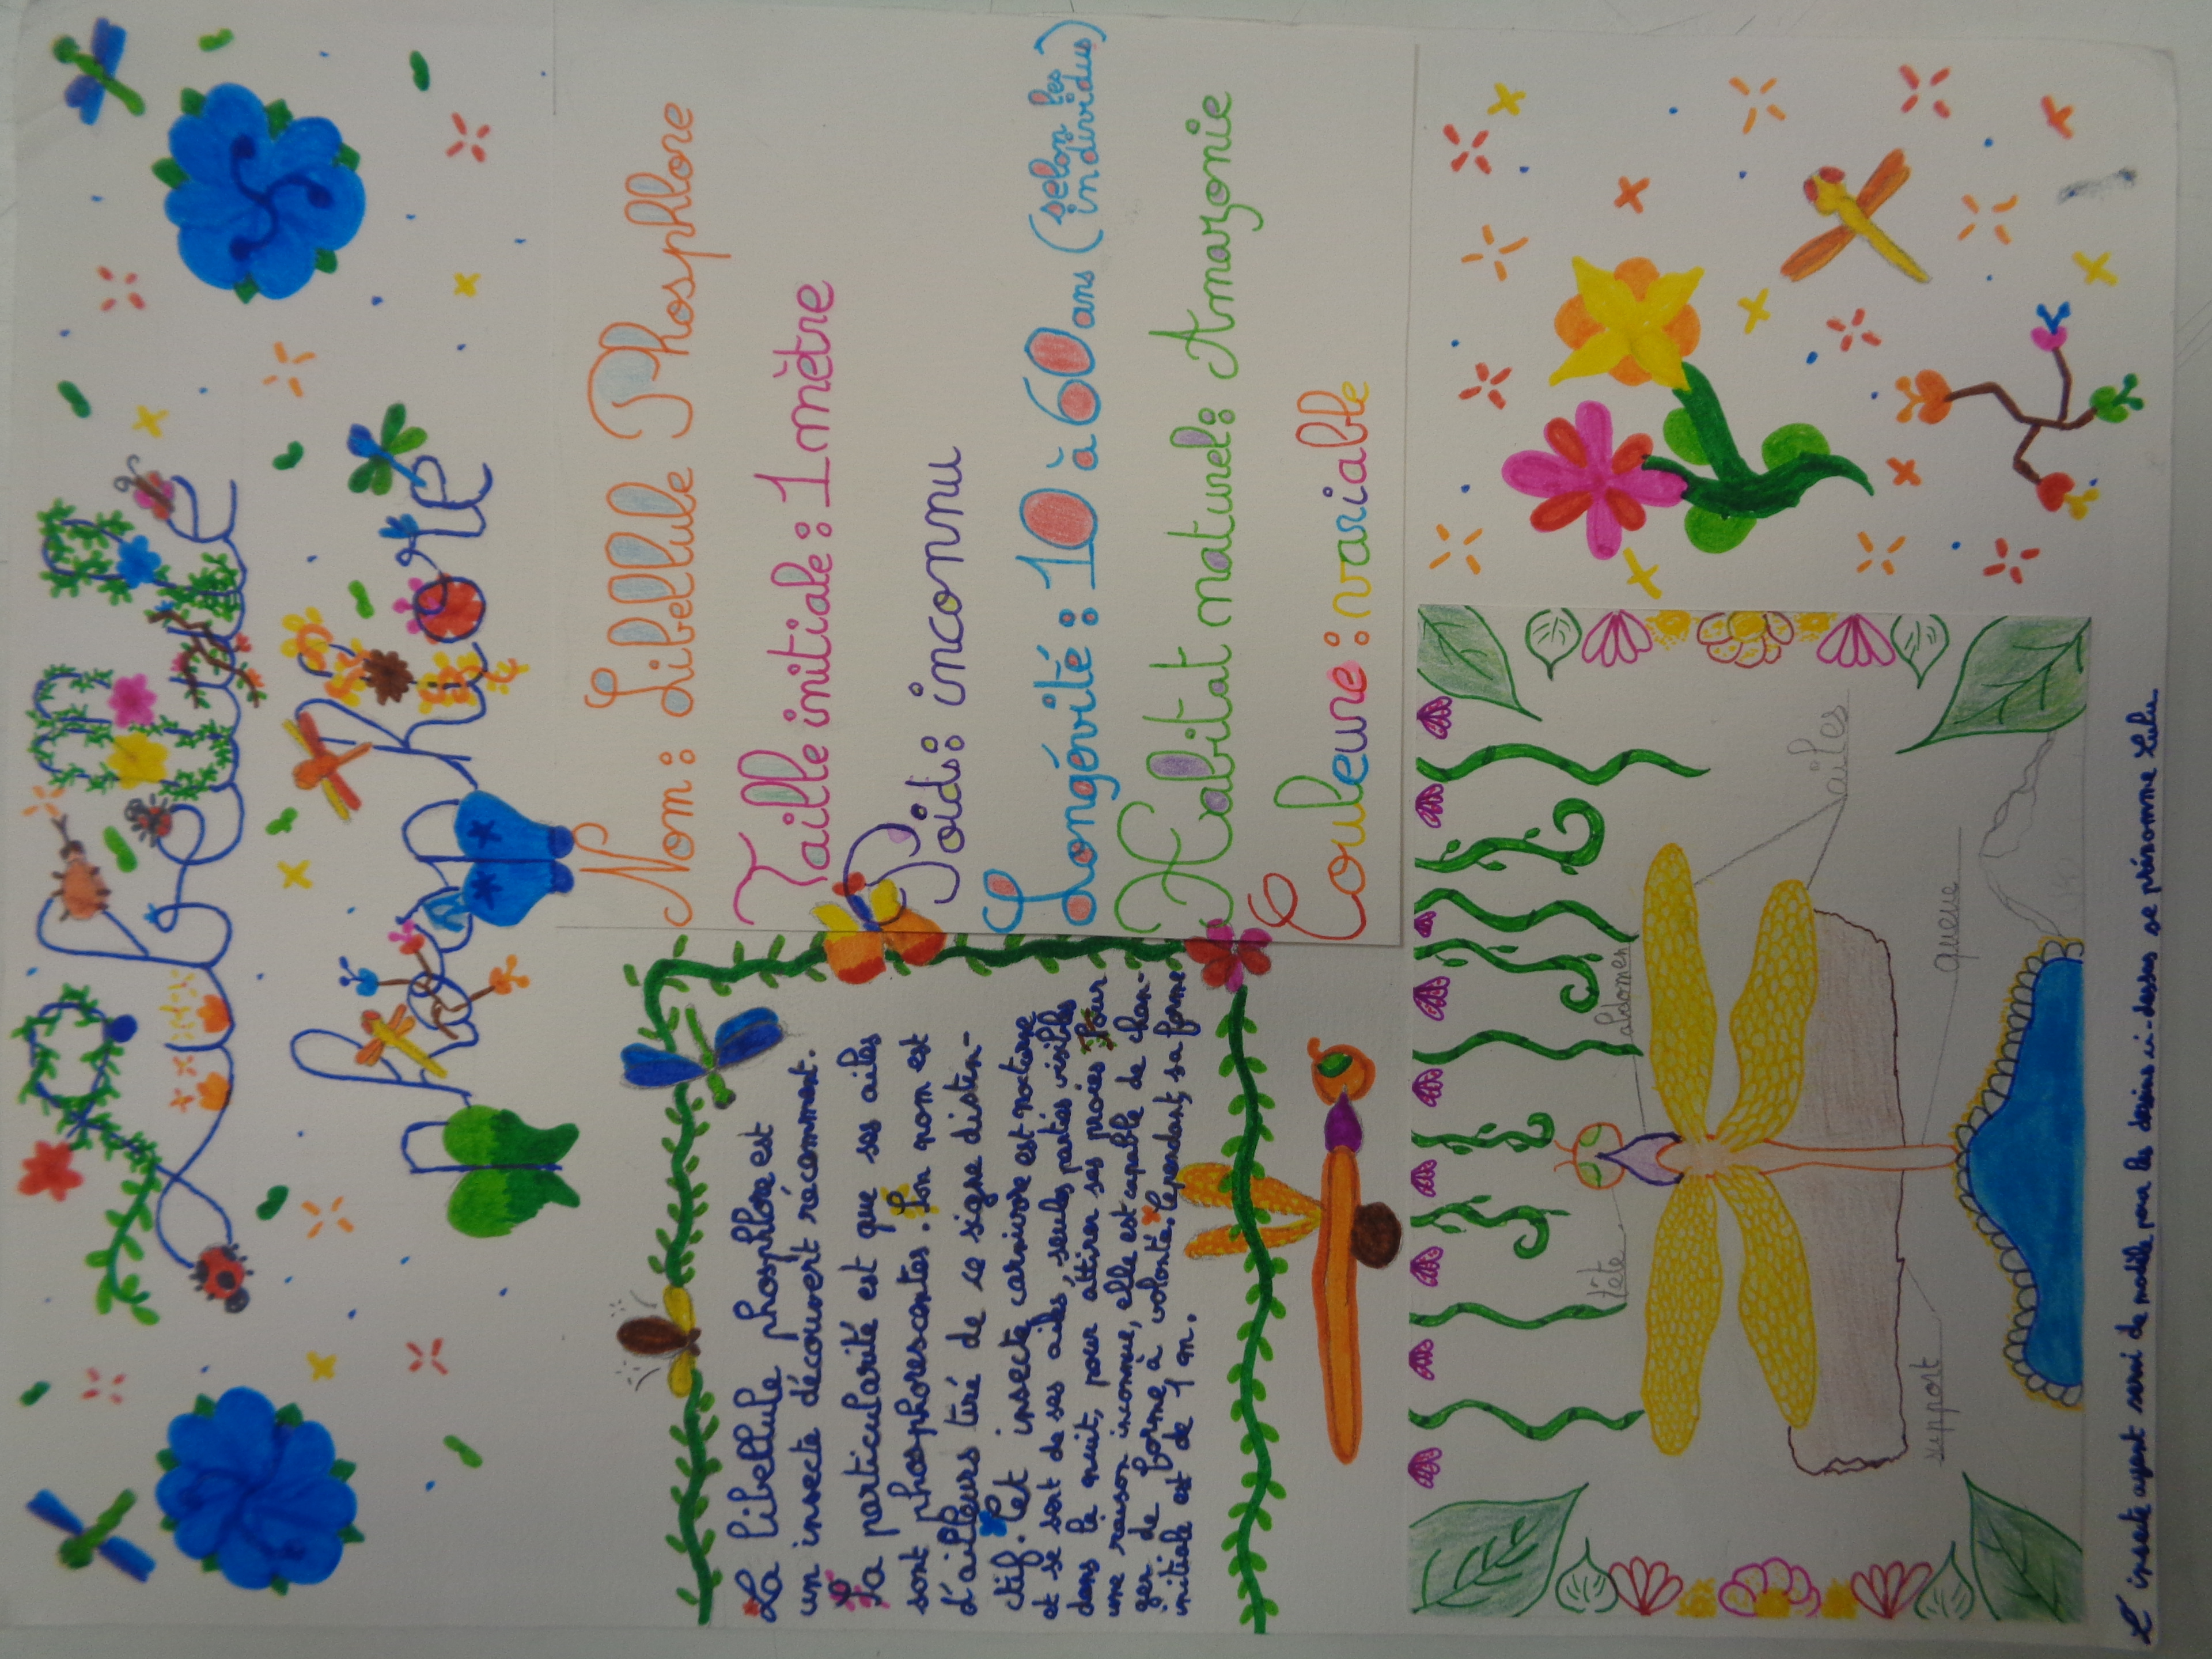 La libellule
phosphlore
Nom : Libellule Phosphlore
Taille initiale : 1 mètre
Poids : inconnu
Longévité : 10 à 60 ans (selon les individus)
Habitat naturel : Amazonie
Couleure : variable
La libellule phosphlore est
un insecte découvert récemment.
La particularité est que ses ailes
sont phosphorescantes. Son nom est
d'ailleurs tiré de ce signe distin-
ctif. Cet insecte carnivore est nocturne
et se sert de ses ailes, seules parties visibles
dans la nuit, pour attirer ses proies. Pour
une raison inconnue, elle est capable de chan-
ger de forme à volonté. Cependant, sa forme
initiale est de 1 m.
tête
abdomen
ailes
queue
support
L'insecte ayant servi de modèle pour les dessins ci-dessus se prénomme Lulu